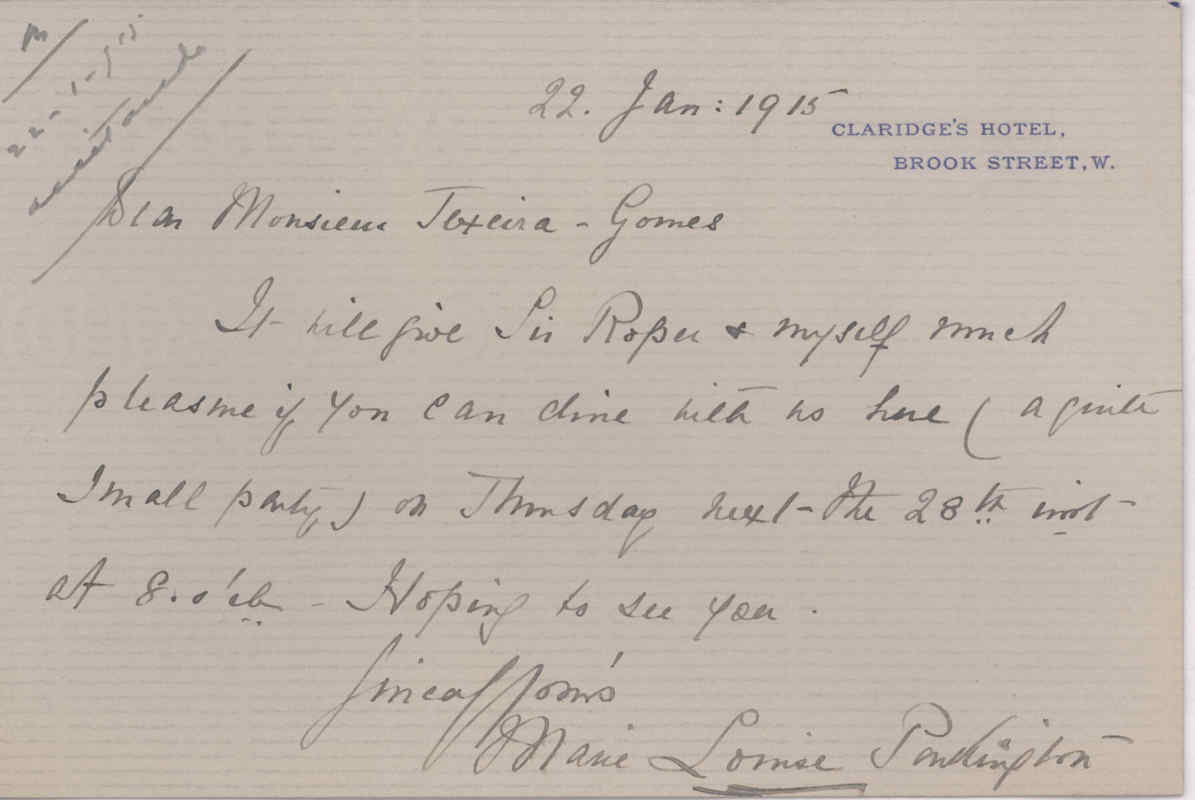 22-1-915
22. Jan: 1915
CLARIDGE'S HOTEL,
BROOK STREET, W.
Dear Monsieur Texeira - Gomes
It will give Sir Roper & myself much
pleasure if you can dine with us here (a quite
small party) on Thursday next - the 28th inst -
at 8. o'ck - Hoping to see you .
yours
Marie Louise Parkington